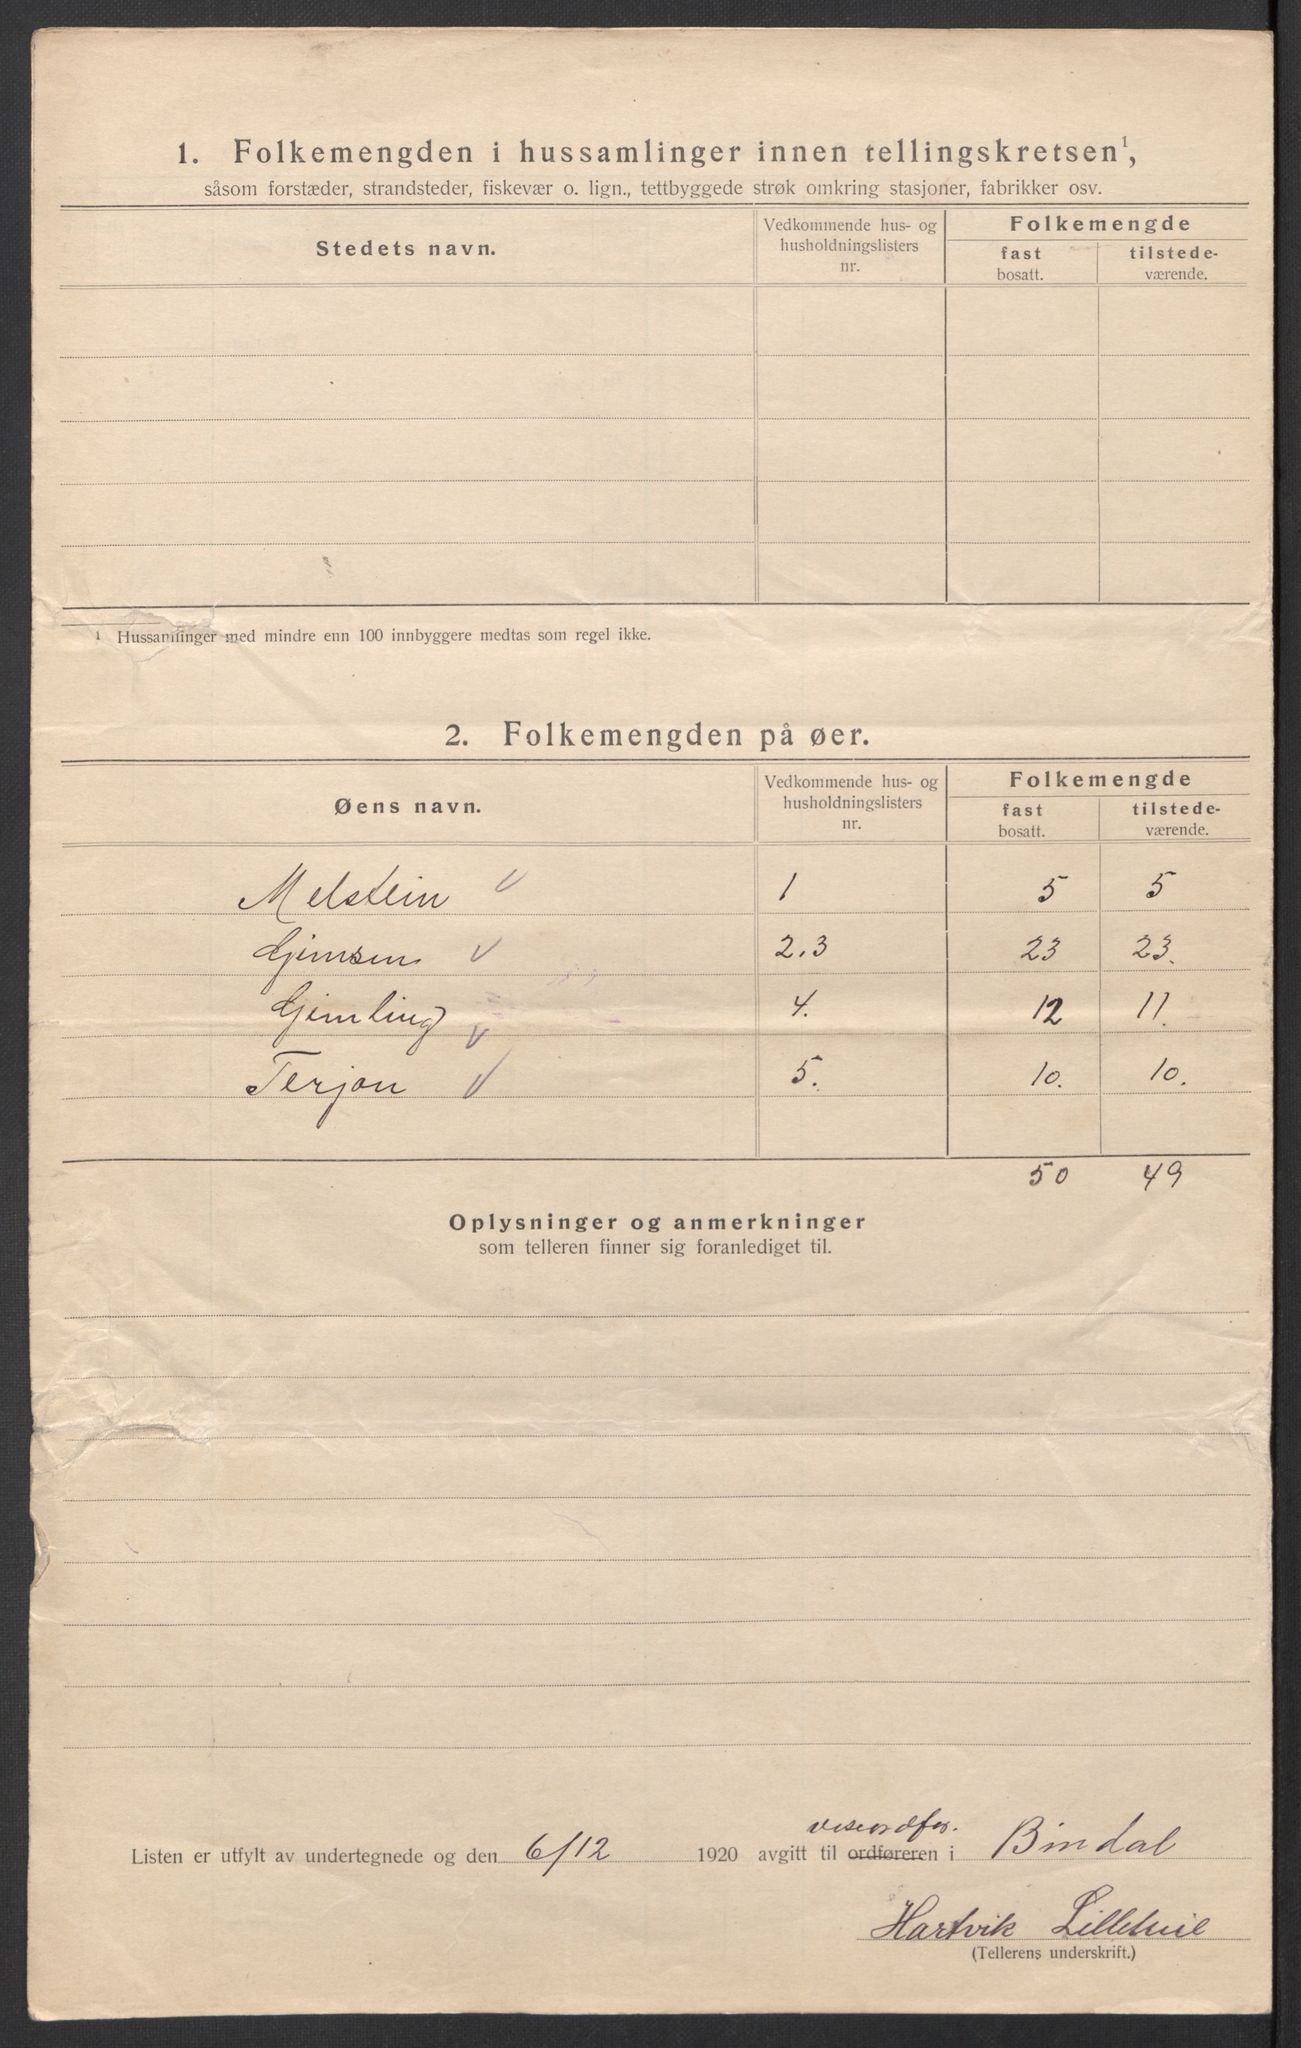 1. Folkemengden i hussamlinger innen tellingskretsen¹,
såsom forstæder, strandsteder, fiskevær o. lign., tettbyggede strøk omkring stasjoner, fabrikker osv.
Stedets navn. Vedkommende hus- og husholdningslisters nr. Folkemengde
fast bosatt. tilstede-værende.
¹ Hussamlinger med mindre enn 100 innbyggere medtas som regel ikke.
2. Folkemengden på øer.
Øens navn. Vedkommende hus- og husholdningslisters nr. Folkemengde
fast bosatt. tilstede-værende.
Melstein V 1 5 5
Gimsen V 2.3 23 23.
Gimling V 4. 12 11.
Terjon V 5. 10. 10.
50 49
Oplysninger og anmerkninger
som telleren finner sig foranlediget til.
viseordfør.
Listen er utfylt av undertegnede og den 6/12 1920 avgitt til ordføreren i Bindal
Hartvik
(Tellerens underskrift.)